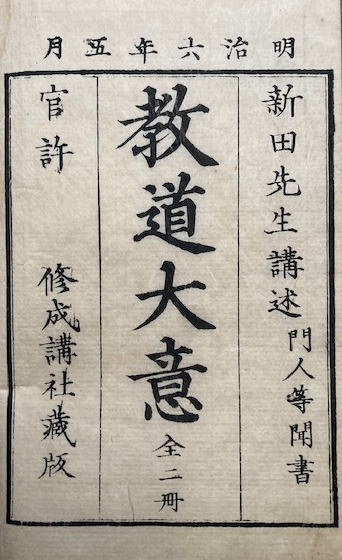 明治六年五月
新田先生講述 門人等聞書
教道大意 全二冊
官許 修成講社藏版